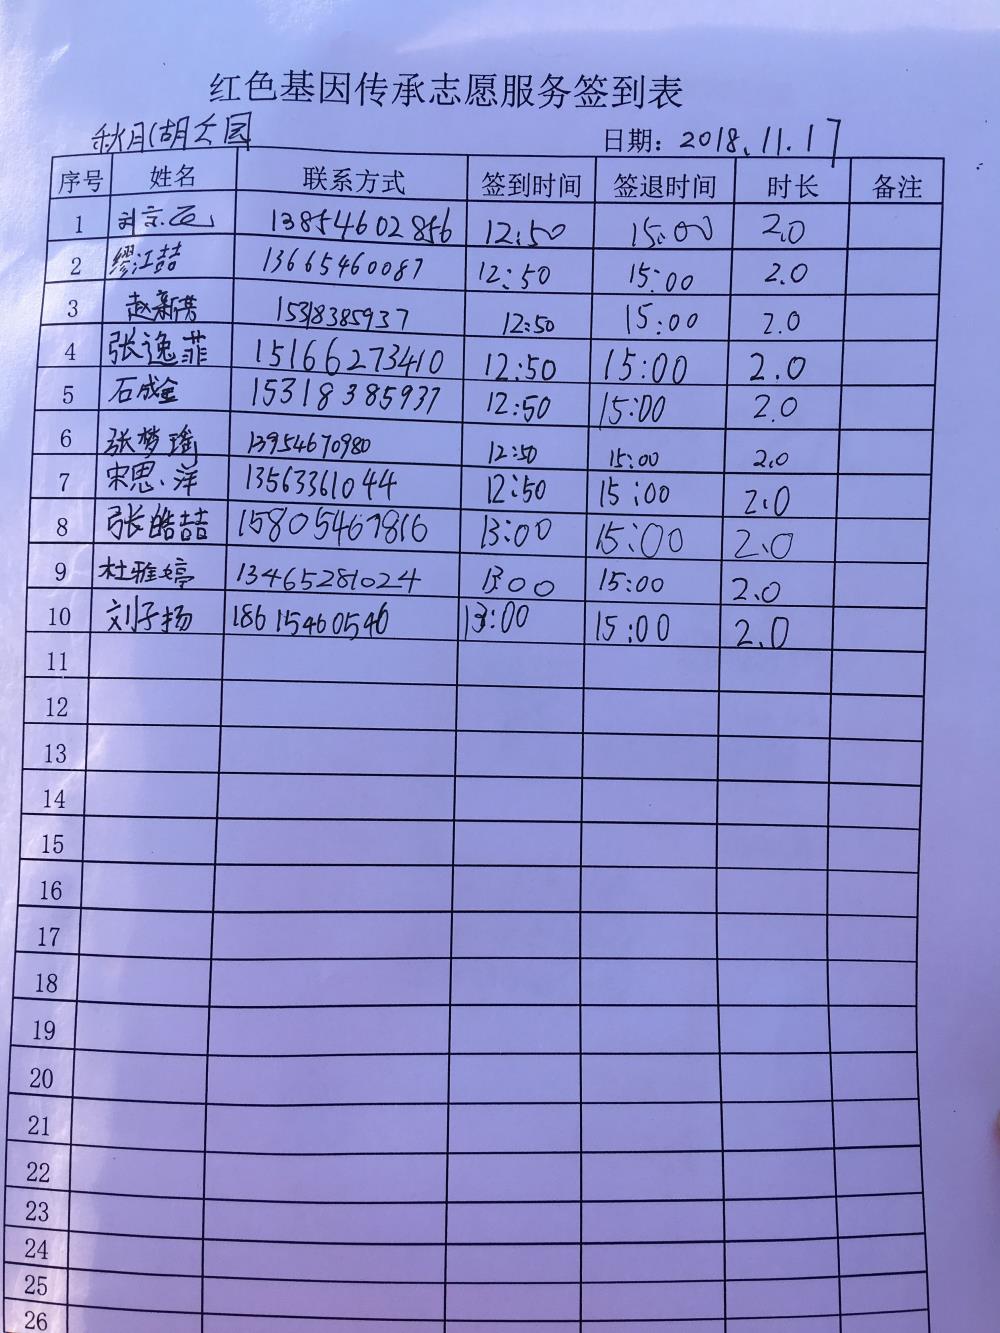 红色基因传承志愿服务签到表
秋月湖公园 日期：2018.11.17
序号 姓名 联系方式 签到时间 签退时间 时长 备注
1 13854602856 12:50 15:00 2.0
2 缪江喆 13665460087 12:50 15:00 2.0
3 赵新芳 15318385937 12:50 15:00 2.0
4 张逸菲 15166273410 12:50 15:00 2.0
5 石成金 15318385937 12:50 15:00 2.0
6 张梦瑶 13954670980 12:50 15:00 2.0
7 宋思洋 13563361044 12:50 15:00 2.0
8 张皓喆 15805467816 13:00 15:00 2.0
9 杜雅婷 13465281024 13:00 15:00 2.0
10 刘子扬 18615460546 13:00 15:00 2.0
11
12
13
14
15
16
17
18
19
20
21
22
23
24
25
26